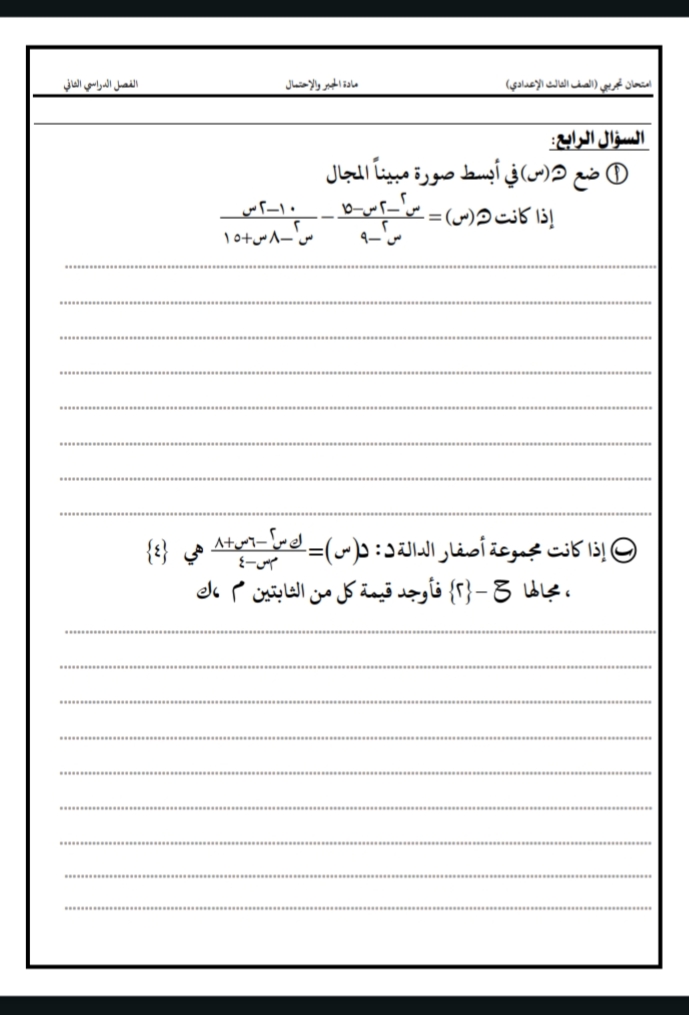 امتحان تجريبي (الصف الثالث الإعدادي) مادة الجبر والإحتمال الفصل الدراسي الثاني
السؤال الرابع:
أ ضع ن(س) في أبسط صورة مبيناً المجال
إذا كانت ن(س) = (س٢–٢س–١٥)/(س٢–٩) – (١٠–٢س)/(س٢–٨س+١٥)
ب إذا كانت مجموعة أصفار الدالة د: د(س)= (ك س٢–٦س+٨)/(م س–٤) هي {٤}
، مجالها ح – {٢} فأوجد قيمة كل من الثابتين م ، ك